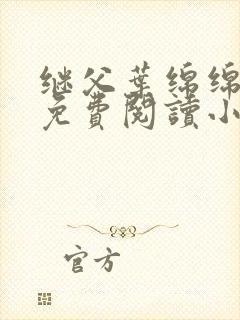 继父葉绵绵
免費閱讀小
官方